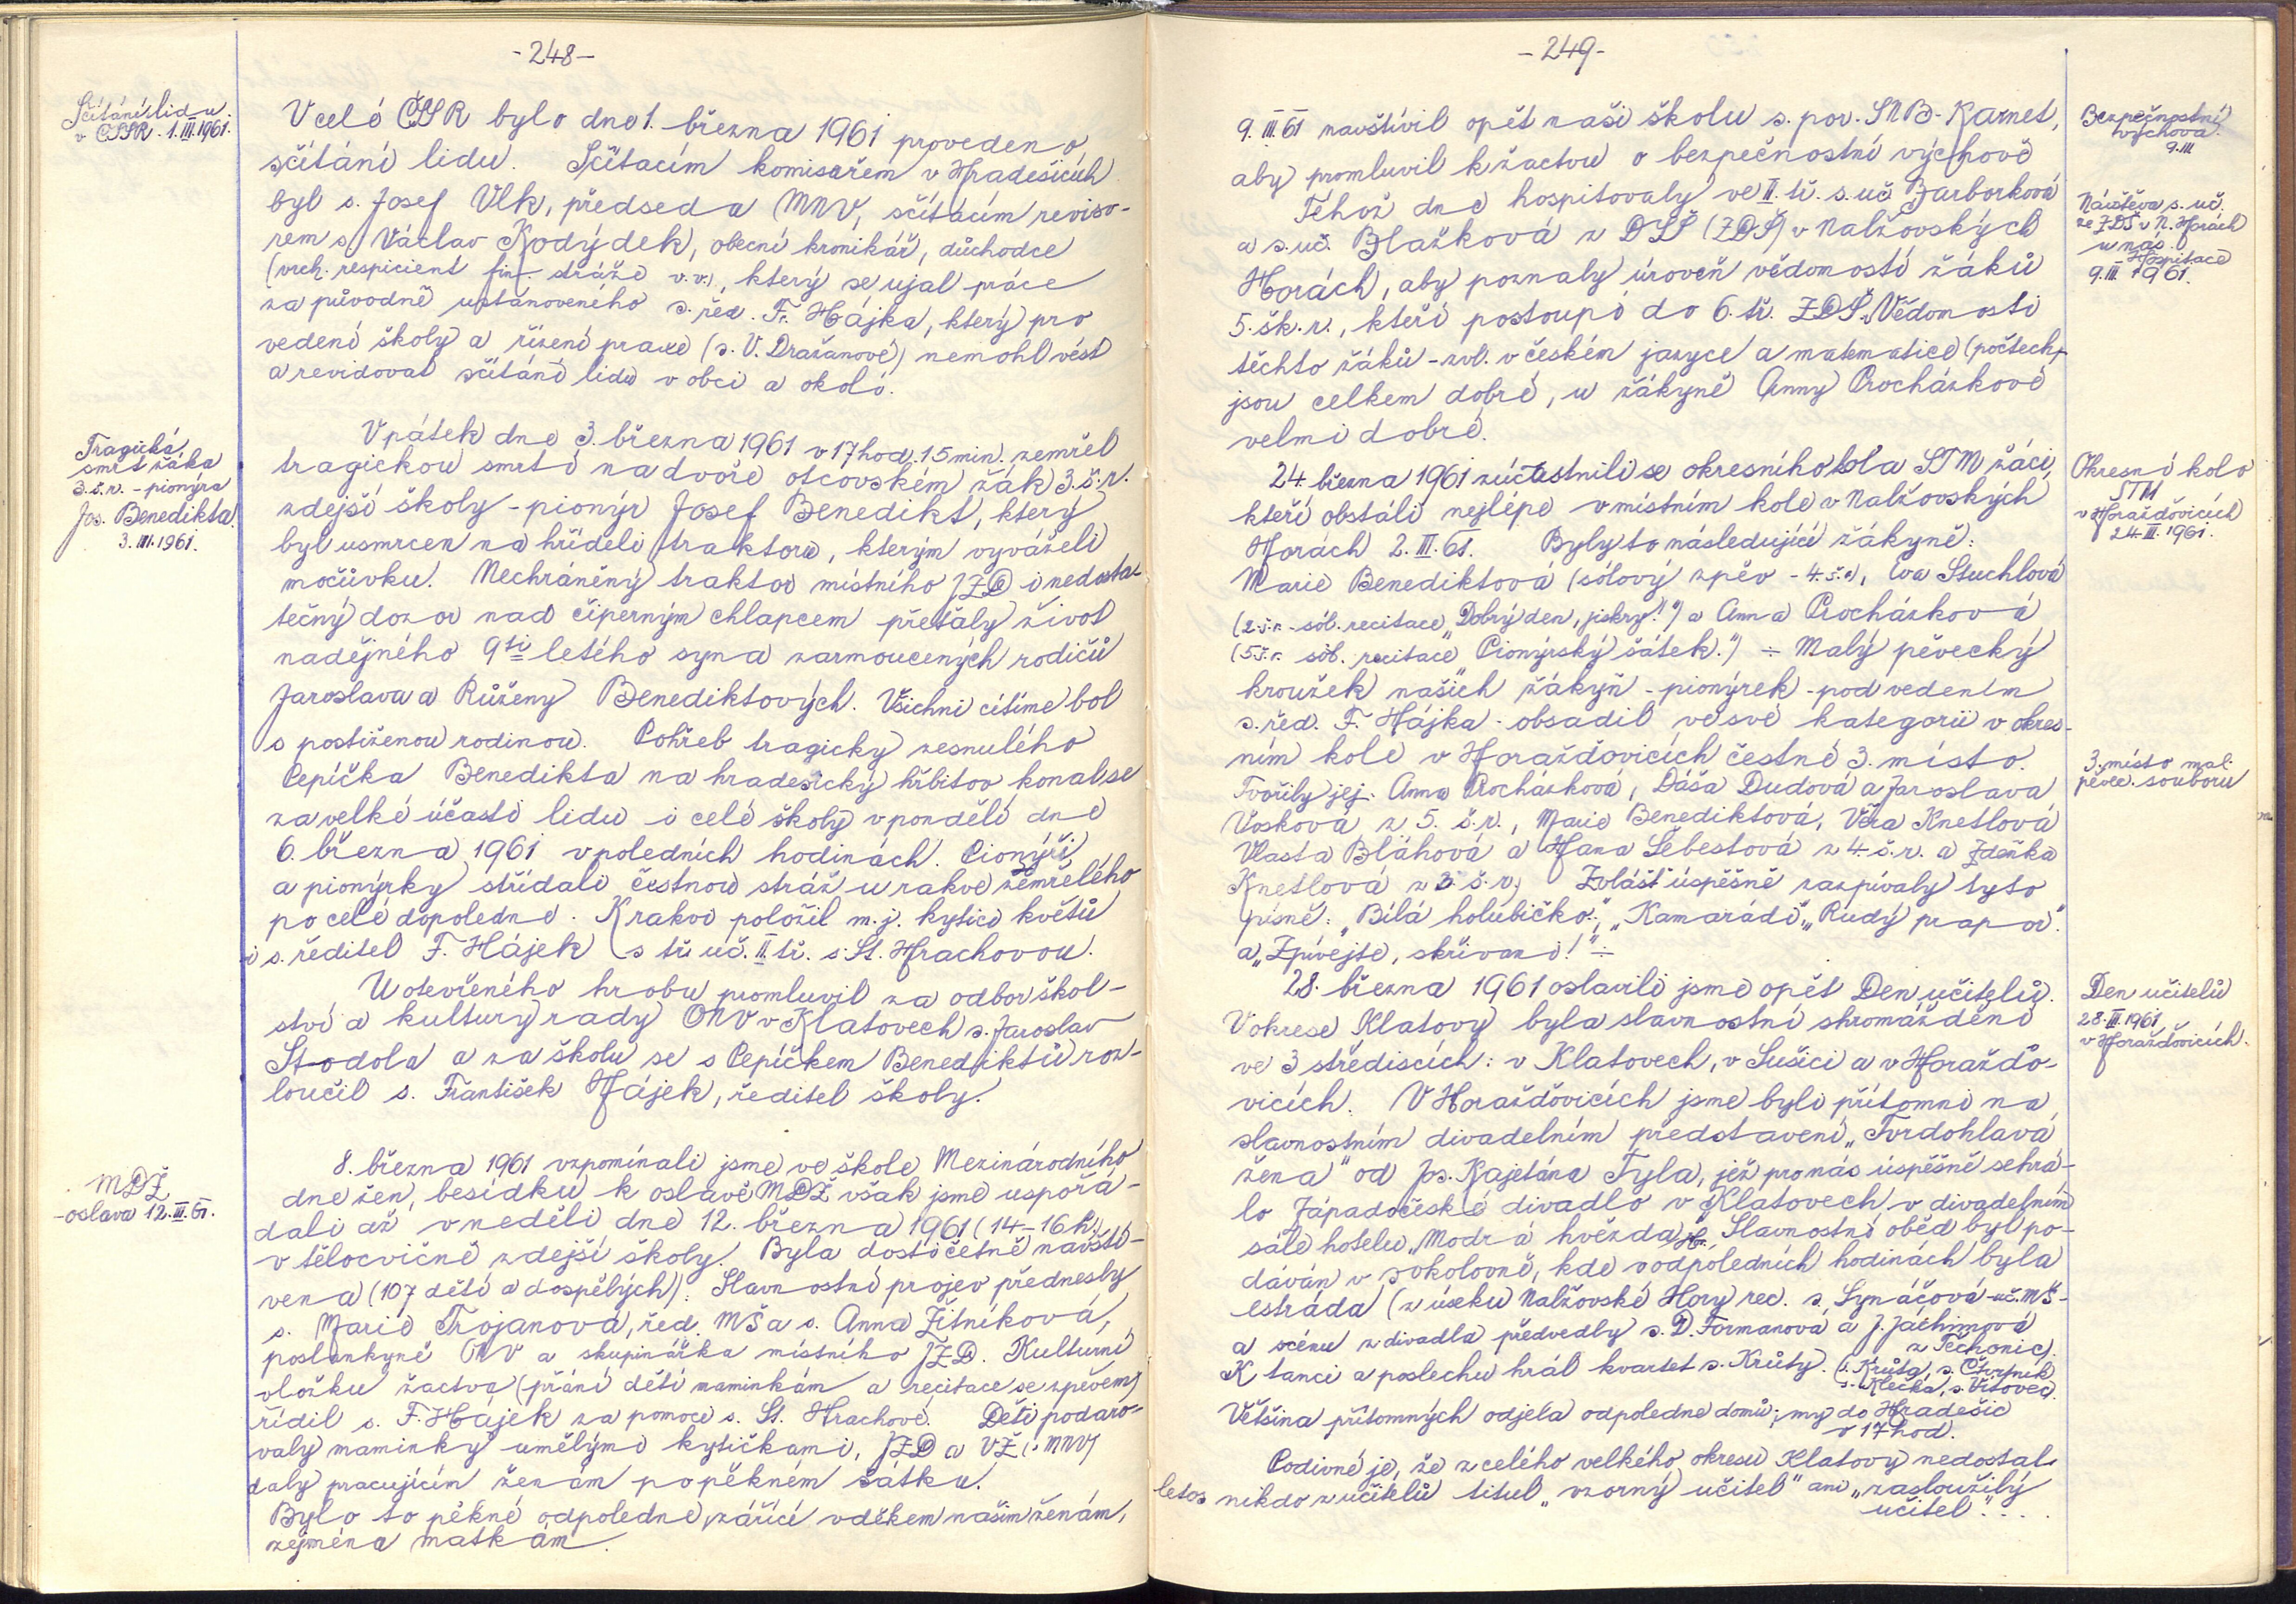 -248-
Sčítání lidu
v ČSSR - 1.III.1961.
V celé ČSSR bylo dne 1. března 1961 provedeno
sčítání lidu. Sčítacím komisařem v Hradešicích
byl s. Josef Vlk, předseda MNV, sčítacím reviso-
rem s. Václav Kodýdek, obecní kronikář, důchodce
(vrch. respicient fin. stráže v.v.), který se ujal práce
za původně ustanoveného s. řed. Fr. Hájka, který pro
vedení školy a řízení praxe (s. V. Dražanové) nemohl vést
a revidovat sčítání lidu v obci a okolí.
Tragická
smrt žáka
3.š.r. - pionýra
Jos. Benedikta.
3.III.1961.
V pátek dne 3. března 1961 v 17 hod. 15 min. zemřel
tragickou smrtí na dvoře otcovském žák 3.š.r.
zdejší školy - pionýr Josef Benedikt, který
byl usmrcen na hřídeli traktoru, kterým vyváželi
močůvku. Nechráněný traktor místního JZD i nedosta-
tečný dozor nad čiperným chlapcem přeťaly život
nadějného 9ti letého syna zarmoucených rodičů
Jaroslava a Růženy Benediktových. Všichni cítíme bol
s postiženou rodinou. Pohřeb tragicky zesnulého
Pepíčka Benedikta na hradešický hřbitov konal se
za velké účasti lidu i celé školy v pondělí dne
6. března 1961 v poledních hodinách. Pionýři
a pionýrky střídali čestnou stráž u rakve zemřelého
po celé dopoledne. K rakvi položil m.j. kytici květů
i s. ředitel F. Hájek s tř. uč. II. tř. s. St. Hrachovou.
U otevřeného hrobu promluvil za odbor škol-
ství a kultury rady ONV v Klatovech s. Jaroslav
Stodola a za školu se s Pepíčkem Benediktů roz-
loučil s. František Hájek, ředitel školy.
MDŽ
- oslava 12.III.61.
8. března 1961 vzpomínali jsme ve škole Mezinárodního
dne žen, besídku k oslavě MDŽ však jsme uspořá-
dali až v neděli dne 12. března 1961 (14-16 h.)
v tělocvičně zdejší školy. Byla dosti četně navští-
vena (107 dětí a dospělých). Slavnostní projev přednesly
s. Marie Trojanová, řed. MŠ a s. Anna Žitníková,
poslankyně ONV a skupinářka místního JZD. Kulturní
vložku žactva (přání dětí maminkám a recitace se zpěvem)
řídil s. F. Hájek za pomoci s. St. Hrachové. Děti podaro-
valy maminky umělými kytičkami, JZD a VŽ (i MNV)
daly pracujícím ženám po pěkném šátku.
Bylo to pěkné odpoledne, zářící vděkem našim ženám,
zejména matkám.
-249-
9.III 61 navštívil opět naši školu s. por. SNB - Karnet,
aby promluvil k žactvu o bezpečnostní výchově
Bezpečnostní
výchova.
9.III
Téhož dne hospitovaly ve II. tř. s. uč. Barborková
a s. uč. Blažková z DSŠ (ZDŠ) v Nalžovských
Horách, aby poznaly úroveň vědomostí žáků
5. šk. r., kteří postoupí do 6. tř. ZDŠ. Vědomosti
těchto žáků - zvl. v českém jazyce a matematice (počtech)
jsou celkem dobré, u žákyně Anny Procházkové
velmi dobré.
Návštěva s. uč.
ze ZDŠ v N. Horách
u nás.
Hospitace
9.III 1961.
24. března 1961 zúčastnili se okresního kola STM žáci,
kteří obstáli nejlépe v místním kole v Nalžovských
Horách 2.III.61. Byly to následující žákyně:
Marie Benediktová (sólový zpěv - 4.š.r.), Eva Stuchlová
(2.š.r. - sól. recitace „Dobrý den, jiskry!“) a Anna Procházková
(5.š.r. sól. recitace „Pionýrský šátek.“) ÷ Malý pěvecký
kroužek našich žákyň - pionýrek - pod vedením
s. řed. F. Hájka - obsadil ve své kategorii v okres-
ním kole v Horažďovicích čestné 3. místo.
Tvořily jej: Anna Procházková, Dáša Dudová a Jaroslava
Vosková z 5. š.r., Marie Benediktová, Věra Knetlová
Vlasta Bláhová a Hana Šebestová z 4. š.r. a Zdeňka
Knetlová z 3. š.r. Zvlášť úspěšně zazpívaly tyto
písně: „Bílá holubičko“, „Kamarádi“, „Rudý prapor“.
a „Zpívejte, skřivani!“ ÷
Okresní kolo
STM
v Horažďovicích
24.III.1961.
3. místo mal.
pěvec. souboru
28. března 1961 oslavili jsme opět Den učitelů.
V okrese Klatovy byla slavnostní shromáždění
ve 3 střediscích: v Klatovech, v Sušici a v Horažďo-
vicích. V Horažďovicích jsme byli přítomni na
slavnostním divadelním představení „Tvrdohlavá
žena“ od Jos. Kajetána Tyla, jež pro nás úspěšně sehrá-
lo Západočeské divadlo v Klatovech v divadelním
sále hotelu „Modrá hvězda“. Slavnostní oběd byl po-
dáván v sokolovně, kde v odpoledních hodinách byla
estráda (z úseku Nalžovské Hory rec. s. Synáčová - uč. MŠ -
a scénu z divadla předvedly s. D. Formanová a J. Jáchimová
z Těchonic).
K tanci a poslechu hrál kvartet s. Krůty. (s. Krůta, s. Čtvrtník
s. Klečka, s. Vítovec).
Většina přítomných odjela odpoledne domů; my do Hradešic
v 17 hod.
Podivné je, že z celého velkého okresu Klatovy nedostal
letos nikdo z učitelů titul „vzorný učitel“ ani „zasloužilý
učitel“....
Den učitelů
28.III.1961
v Horažďovicích.